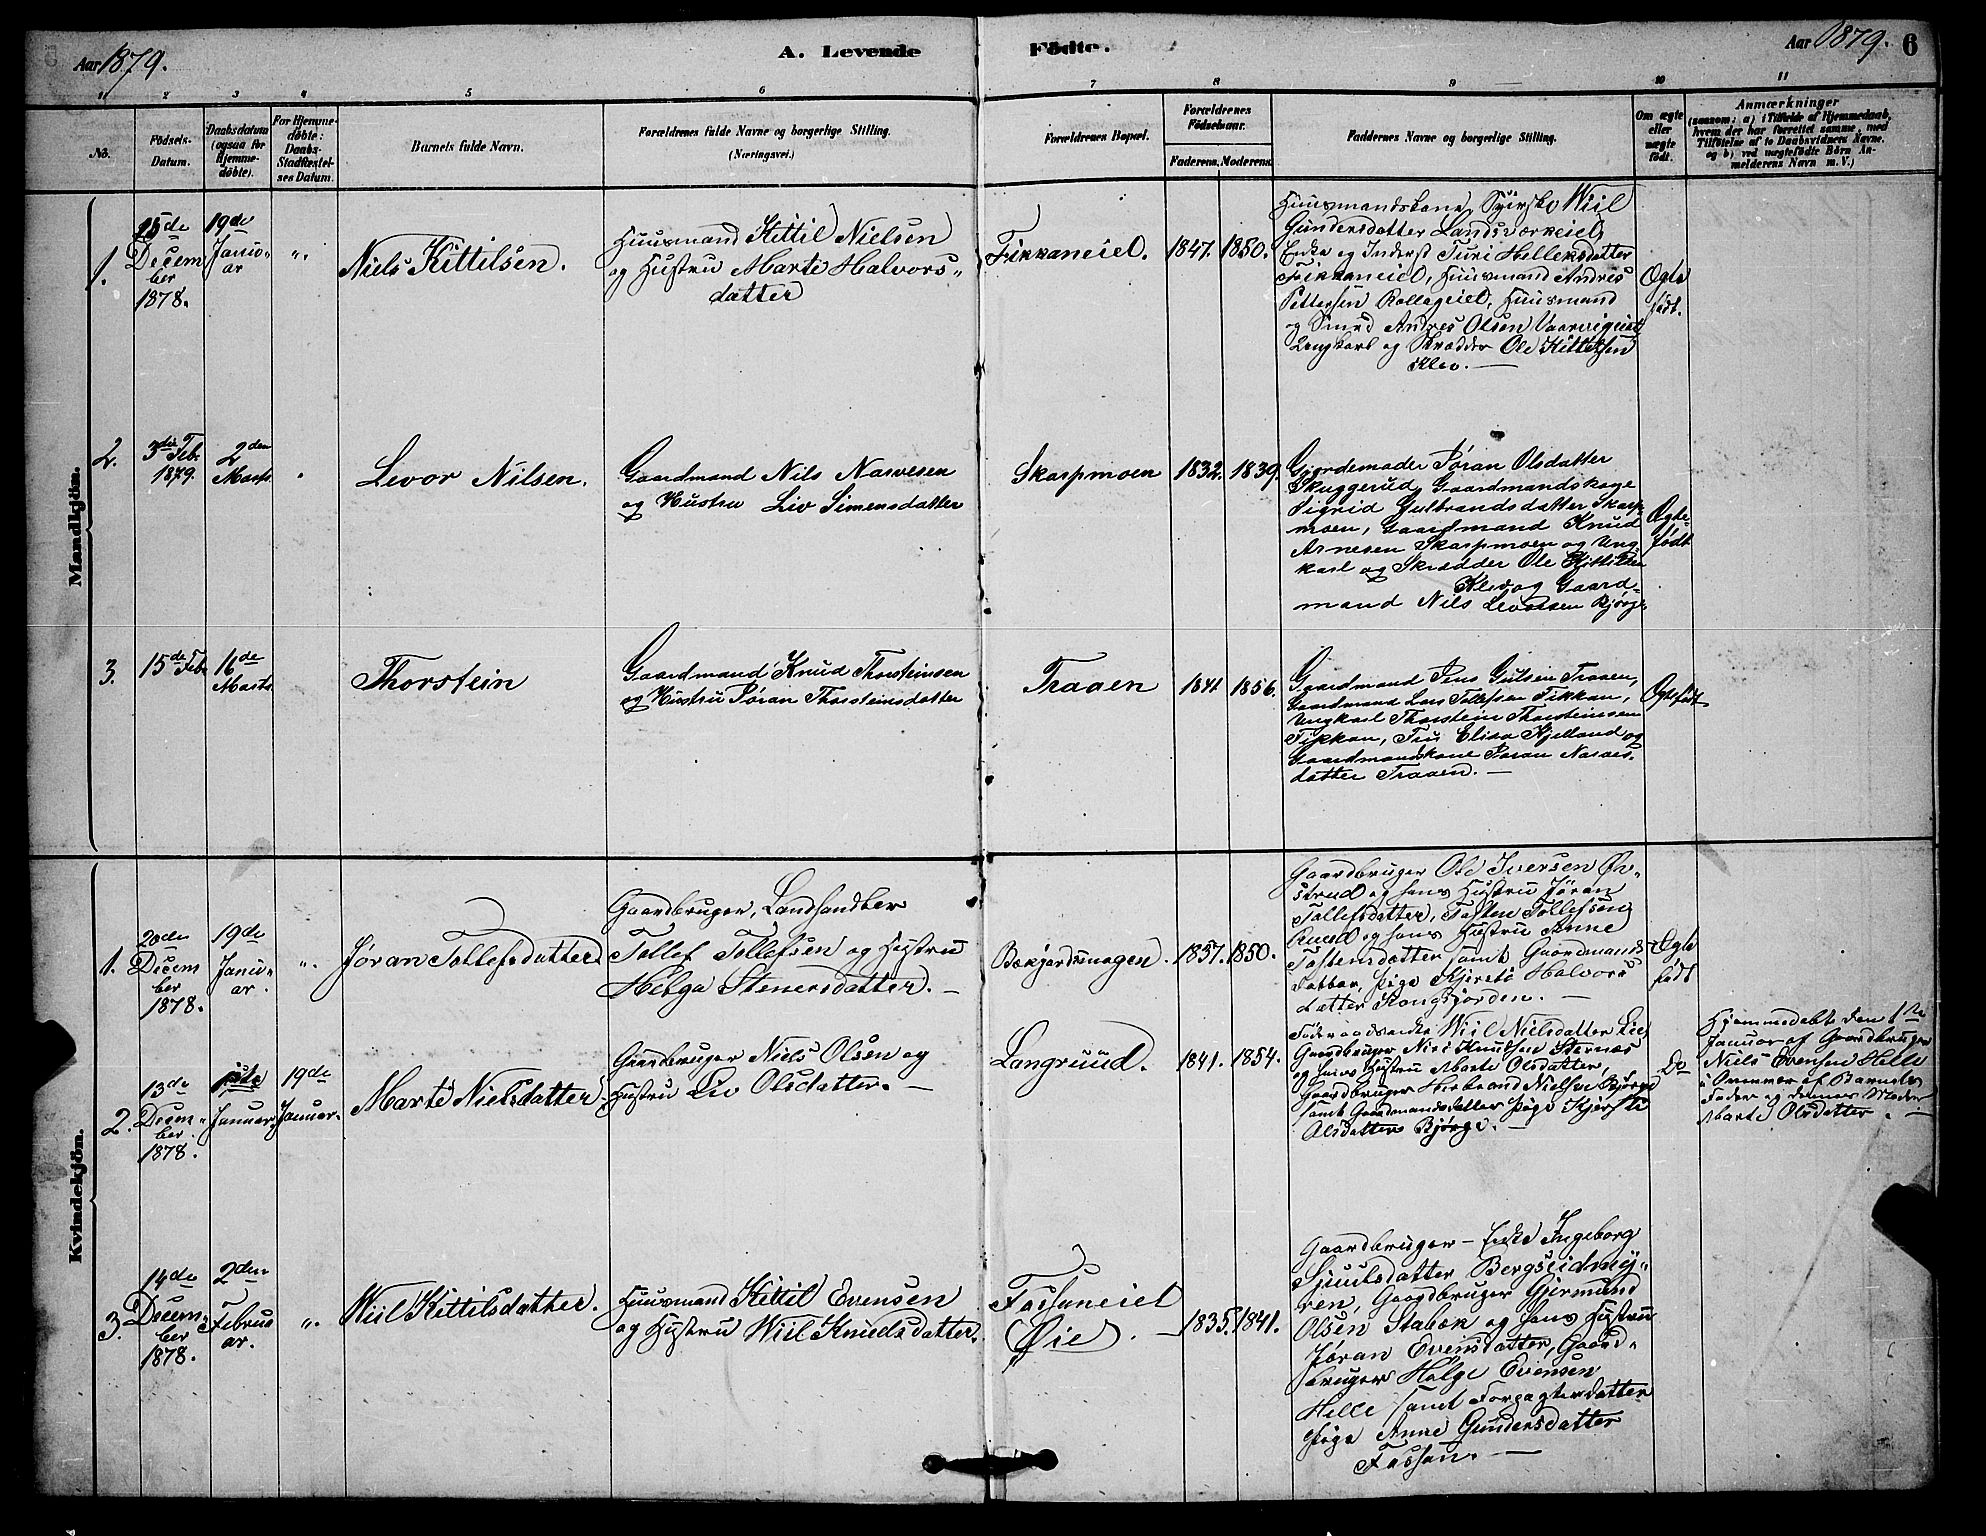 Aar 1879.
A. Levende Födte.
Aar 1879.
6
1 2 3 4 5 6 7 8 9 10 11
No.
Födsels-
Datum.
Daabsdatum
(ogsaa for
Hjemme-
døbte).
For Hjemme-
døbte:
Daabs-
Stadfæstel-
ses Datum.
Barnets fulde Navn.
Forældrenes fulde Navne og borgerlige Stilling.
(Næringsvei.)
Forældrenes Bopæl.
Forældrenes
Födselsaar.
Faderens. Moderens.
Faddernes Navne og borgerlige Stilling.
Om ægte
eller
uægte
födt.
Anmærkninger
(saasom: a) i Tilfælde af Hjemmedaab,
hvem der har forrettet samme, med
Tilføielse af to Daabsvidners Navne,
og b) ved uægtefödte Börn An-
melderens Navn m. V.)
Mandkjön.
1.
de
Decem
ber
1878.
19de
Janu-
ar
"
Niels Kittilsen.
Huusmand Kittil Nielsen
og Hustru Marte Halvors-
datter
Fikkaneiel.
1847. 1850.
Huusmandskone Wiil
Gundersdatter Landsværkeiel,
Enke og Inderst Turi Helleksdatter
Fikkaneiel, Huusmand Andres
Pettersen Rollageiel, Huusmand
og Smed Andres Olsen
Ungkarl og Skrædder Ole Kittilsen
Klev. —
Ægte
födt.
2.
3die Feb.
1879.
2den
Marts.
Levor Nilsen.
Gaardmand Nils Narvesen
og Hustru Liv Simensdatter
Skarpmoen
1832. 1839.
Gjordemoder Jøran Olsdatter
Skuggerud, Gaardmandskone
Sigrid Gulbrandsdatter Skarp-
moen, Gaardmand Knud
Arnesen Skarpmoen og Ung-
karl og Skrædder Ole Kittilsen
Klev og Gaard-
mand Nils Levorsen Bjørge.
Ægte-
födt
3.
15de Feb.
16de
Marts
Thorstein
Gaardmand Knud Thorsteinsen
og Hustru Jøran Thorsteinsdatter
Traaen
1841 1856.
Gaardmand Jens Gulsen Traaen,
Gaardmand Lars Tollefsen Fikkan,
Ungkarl Thorstein Thorsteinsen
Fikkan, Fru Elisa Kjelland og
Gaardmandskone Jøran Narves-
datter Traaen. —
Ægtefödt
Kvindekjön.
1.
20de
Decem
ber
1878.
19de
Janu-
ar
"
Jøran Tollefsdatter.
Gaardbruger, Landhandler
Tollef Tollefsen og Hustru
Helga Stenersdatter. —
1857. 1850.
Gaardbruger Ole Iversen Øk-
strud og hans Hustru Jøran
Tollefsdatter, Tosten Tollefsøn
Ruud og hans Hustru Anne
Tostensdatter samt Gaardmands-
datter, Pige Kjersti Halvors-
datter Kongsjorden. —
Ægte
födt
2.
13de
Decem-
ber.
1878.
1ste
Januar.
19de
Januar.
Marte Nielsdatter.
Gaardbruger Niels Olsen og
Hustru Liv Olsdatter. —
Langruud.
1841. 1854.
Føderaadsenke Wiil Nielsdatter Lie,
Gaardbruger Knudsen Sternæs
og hans Hustru Marte Olsdatter,
Gaardbruger Herbrand Nielsen Bjørge
samt Gaardmandsdatter Pige Kjersti
Olsdatter Bjørge. —
Do
Hjemmedøbt den 1ste
Januar af Gaardbruger
Niels Evensen Helle
i Nærvær af Barnets
Fader og dennes Moder
Marte Olsdatter. —
3.
14de
Decem-
ber
1878.
2den
Februa
ar.
"
Wiil Kittilsdatter.
Huusmand Kittil Evensen
og Hustru Wiil Knudsdatter.
Fossaneiel
Øie. —
1835. 1841.
Gaardbruger-Enke Ingeborg
Sjuulsdatter Bergseidmy-
ren, Gaardbruger Gjermund
Olsen Stabæk og hans Hustru
Jøran Evensdatter, Gaard-
bruger Helge Evensen
Helle samt Forpagterdatter
Pige Anne Gundersdatter
Fossan. —